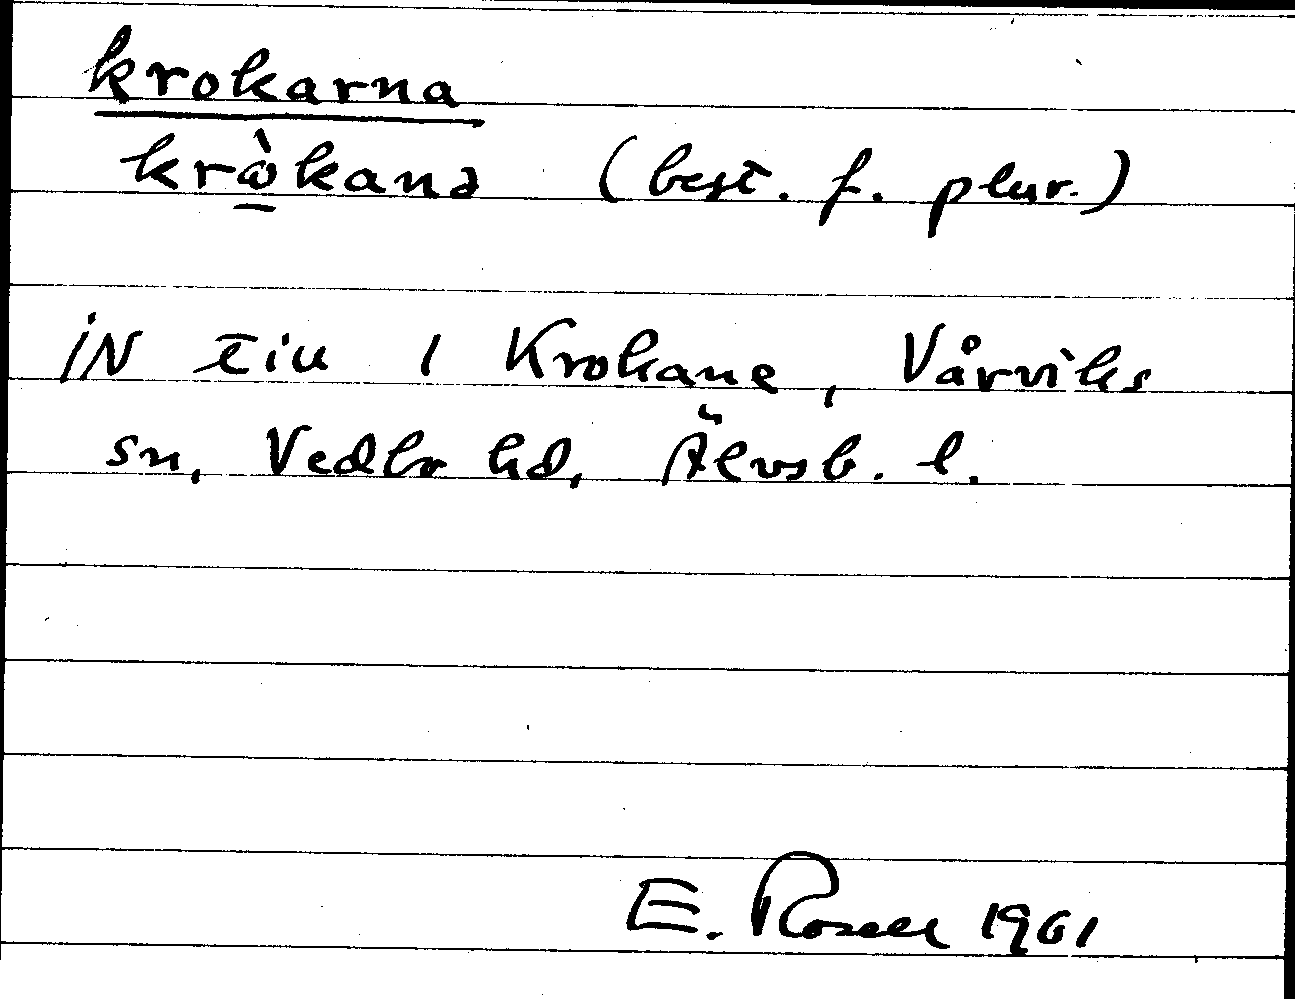 krokarna
krὼkanə (best. f. plur.)
iN till 1 Krokane, Vårviks
sn, Vedbo hd, Älvsb. l.
E. Rosell 1961